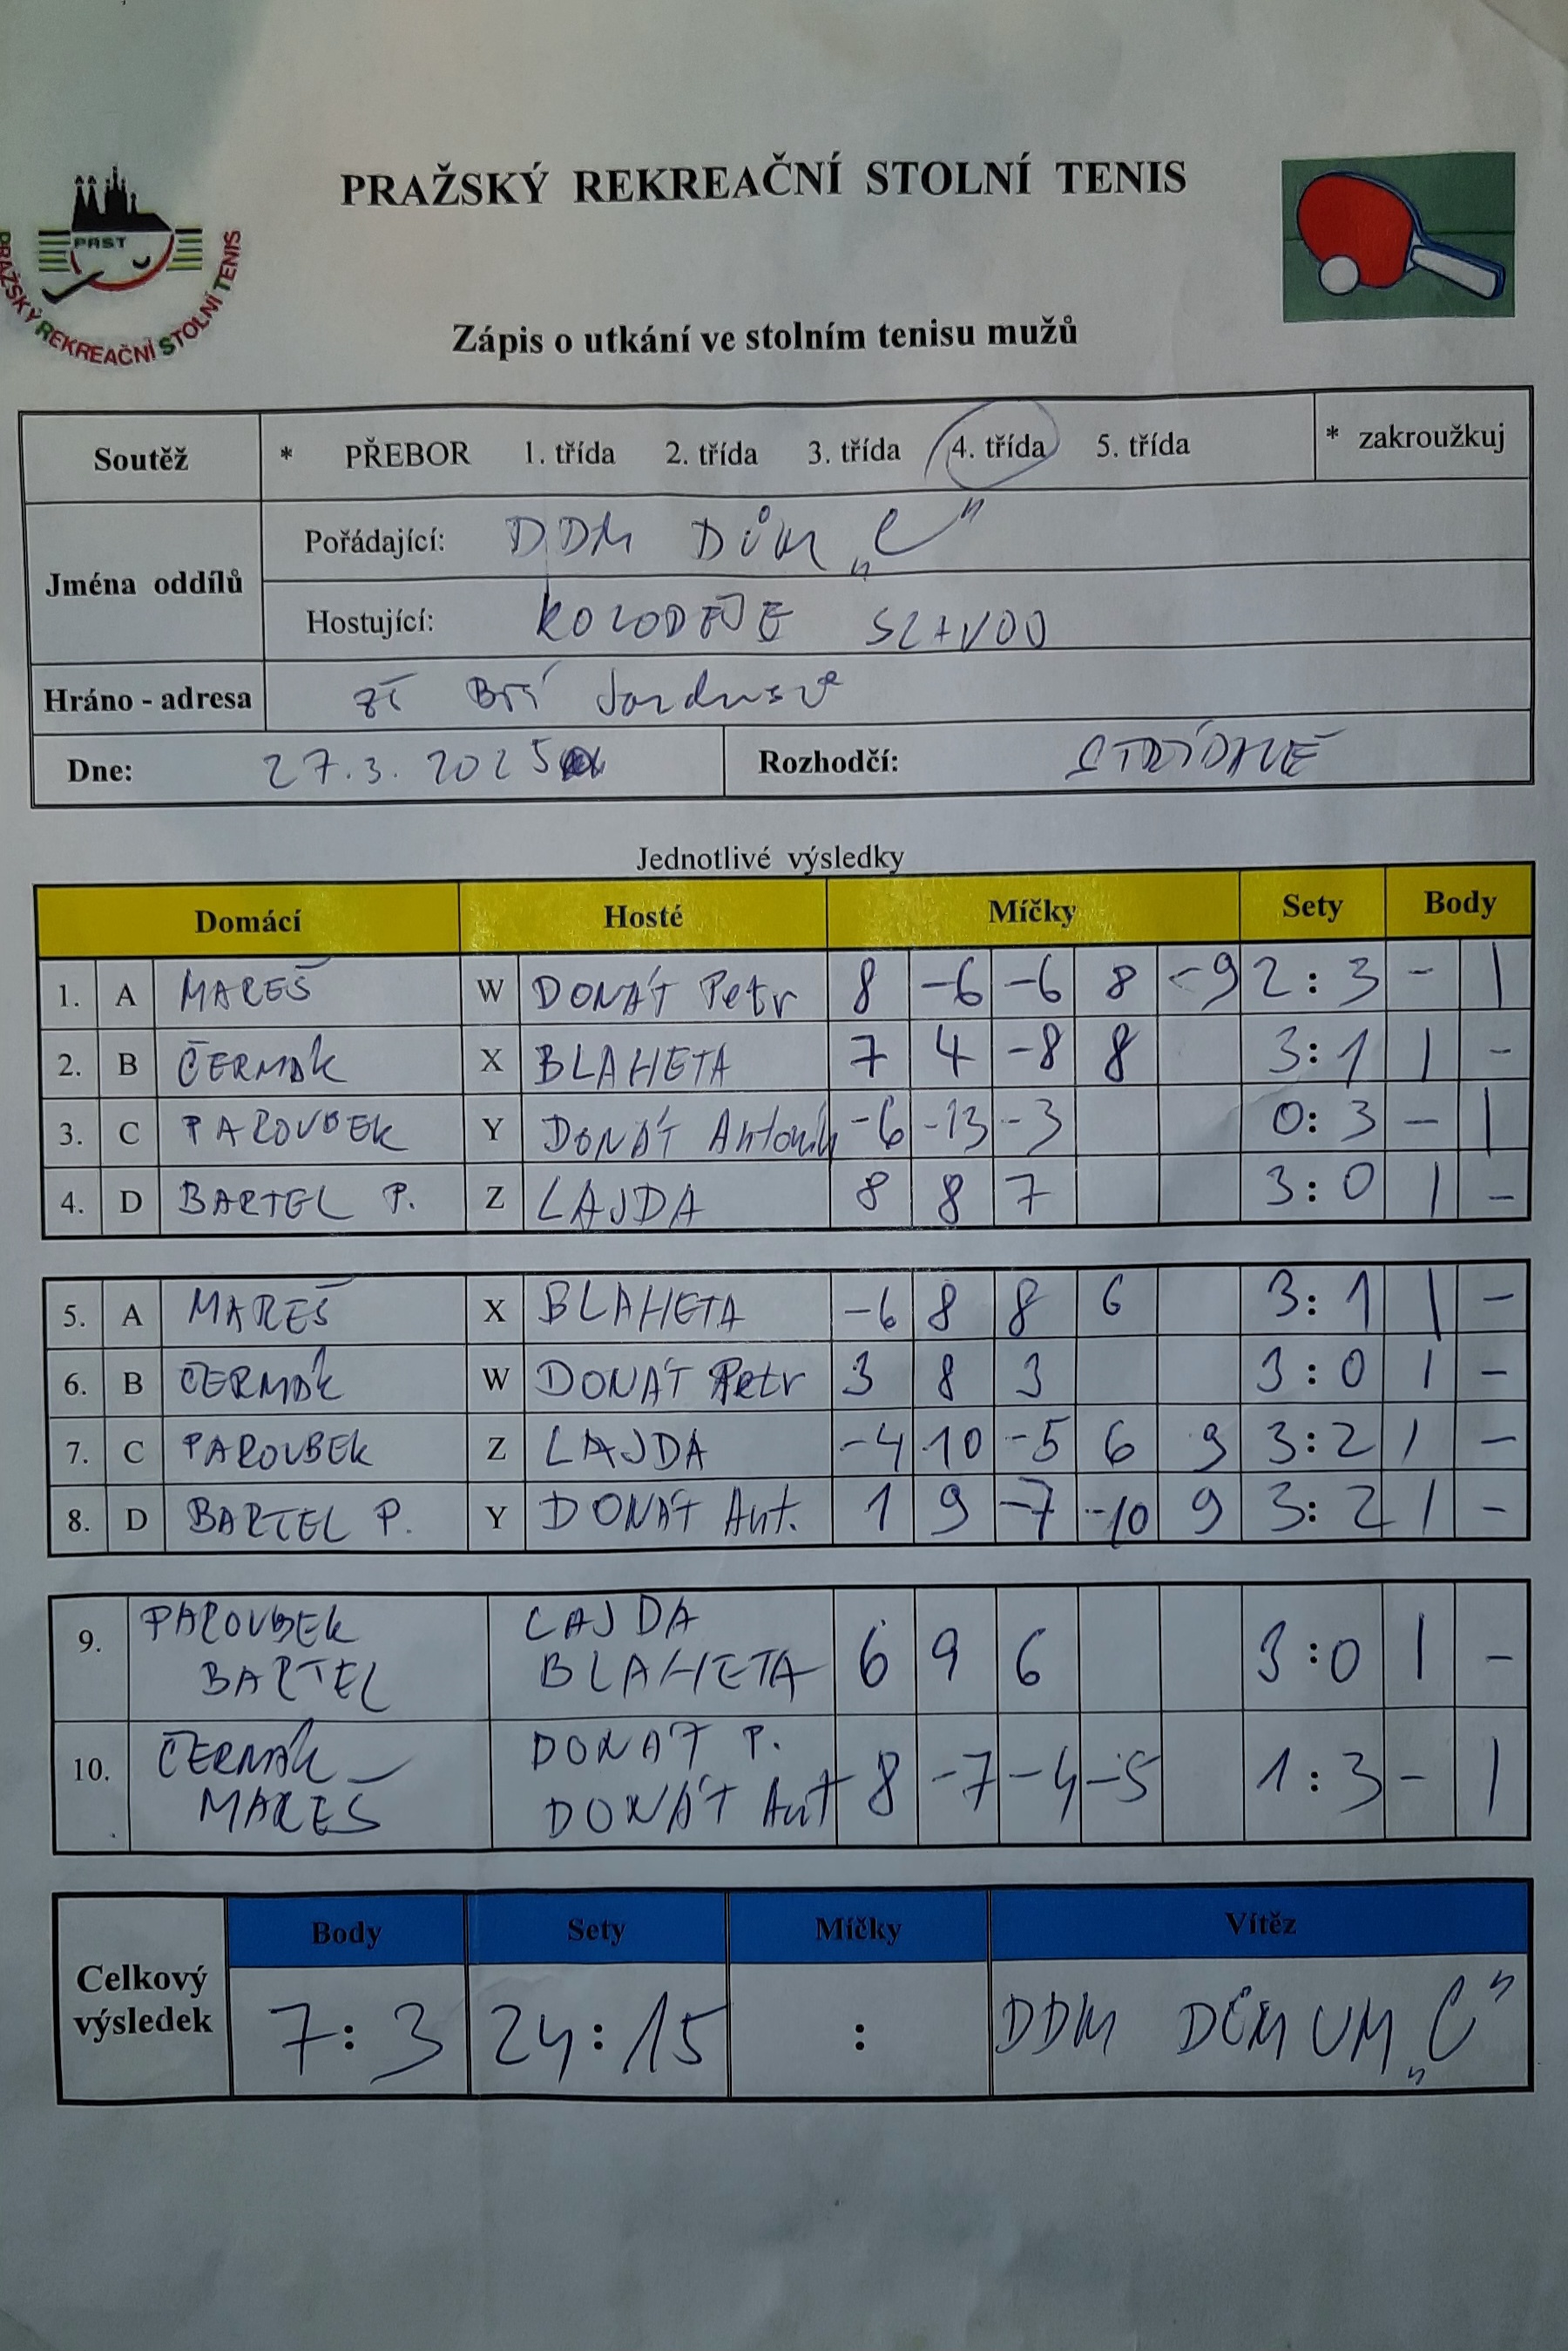 PRAŽSKÝ REKREAČNÍ STOLNÍ TENIS
PRST
PRAŽSKÝ REKREAČNÍ STOLNÍ TENIS
Zápis o utkání ve stolním tenisu mužů
Soutěž * PŘEBOR 1. třída 2. třída 3. třída 4. třída 5. třída * zakroužkuj
Jména oddílů
Pořádající: DDM DŮM „C"
Hostující: KOLODĚJE SLAVOJ
Hráno - adresa ZŠ Bří Jandusů
Dne: 27.3. 2025 Rozhodčí: STŘÍDAVĚ
Jednotlivé výsledky
Domácí Hosté Míčky Sety Body
1. A MAREŠ W DONÁT Petr 8 -6 -6 8 -9 2:3 - 1
2. B ČERMÁK X BLAHETA 7 4 -8 8 3:1 1 -
3. C PAROUBEK Y DONÁT Antonín -6 -13 -3 0:3 - 1
4. D BARTEL P. Z LAJDA 8 8 7 3:0 1 -
5. A MAREŠ X BLAHETA -6 8 8 6 3:1 1 -
6. B ČERMÁK W DONÁT Petr 3 8 3 3:0 1 -
7. C PAROUBEK Z LAJDA -4 10 -5 6 9 3:2 1 -
8. D BARTEL P. Y DONÁT Ant. 1 9 -7 -10 9 3:2 1 -
9. PAROUBEK LAJDA
BARTEL BLAHETA 6 9 6 3:0 1 -
10. ČERMÁK DONÁT P.
MAREŠ DONÁT Ant 8 -7 -4 -5 1:3 - 1
Celkový výsledek
Body Sety Míčky Vítěz
7:3 24:15 : DDM DŮM UM „C"